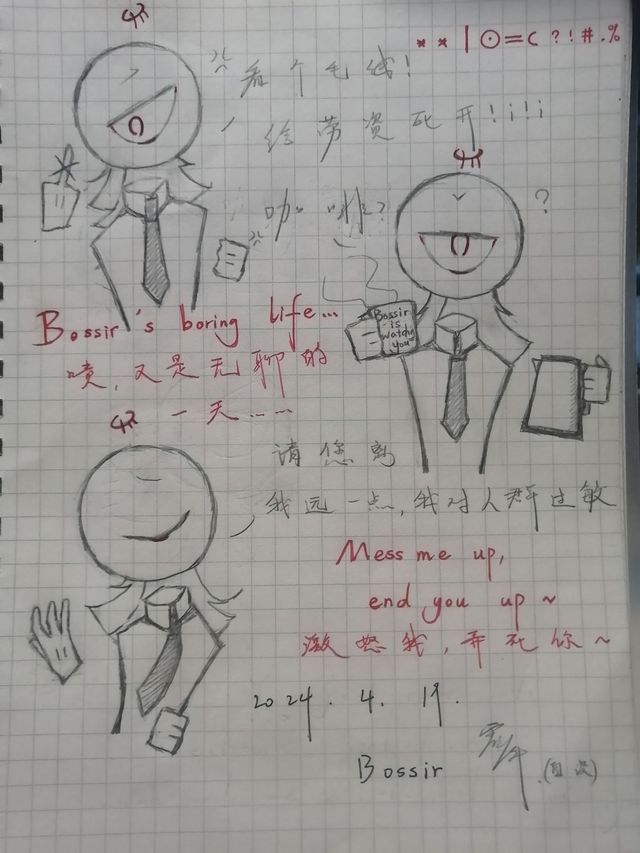 **|⊙=c?!#.%
看个毛线!
给劳资死开!¡!¡
咖啡?
?
Bossir is watching you
Bossir's boring life...
啧,又是无聊的
一天……
请您离
我远一点,我对人群过敏
Mess me up,
end you up~
激怒我,弄死你~
2024.4.19.
Bossir